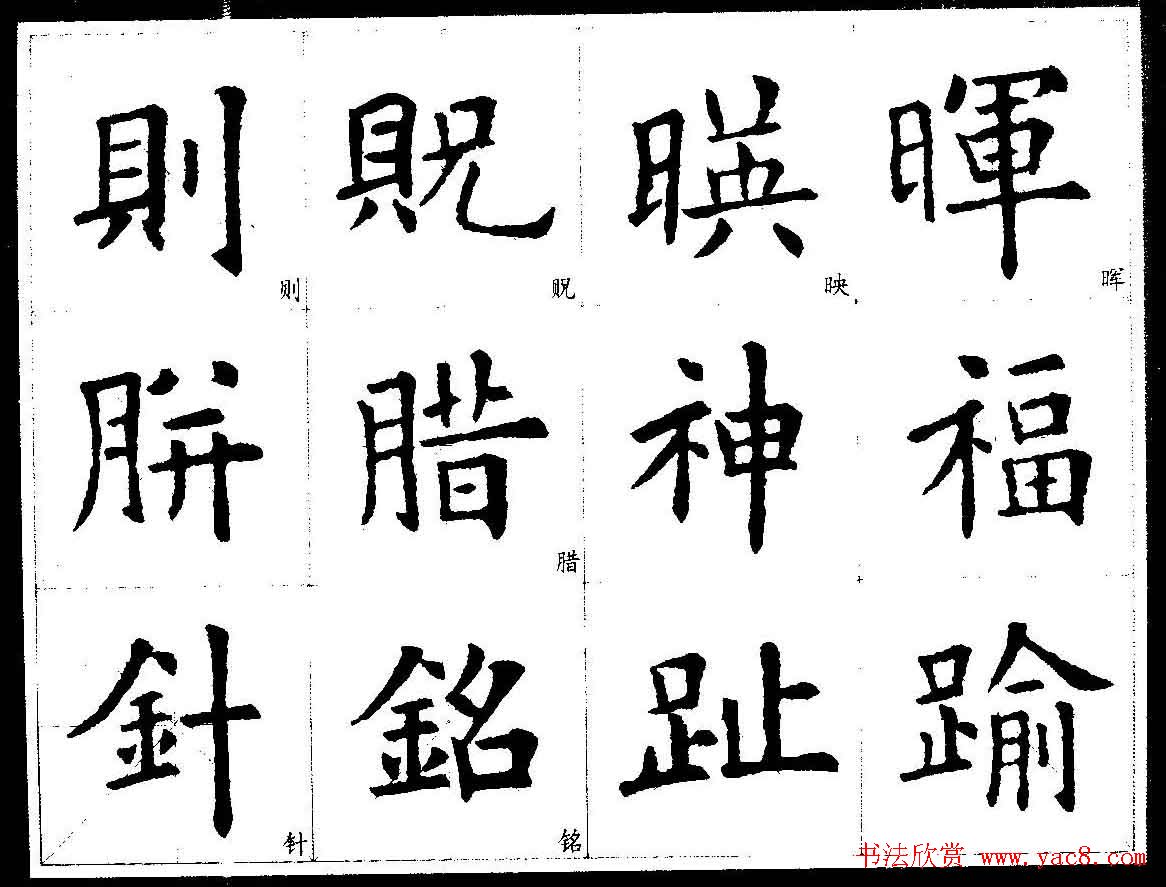 則 貺 暎 暉
则 贶 映 晖
胼 腊 神 福
腊
針 銘 趾 踰
针 铭
书法欣赏 www.yac8.com